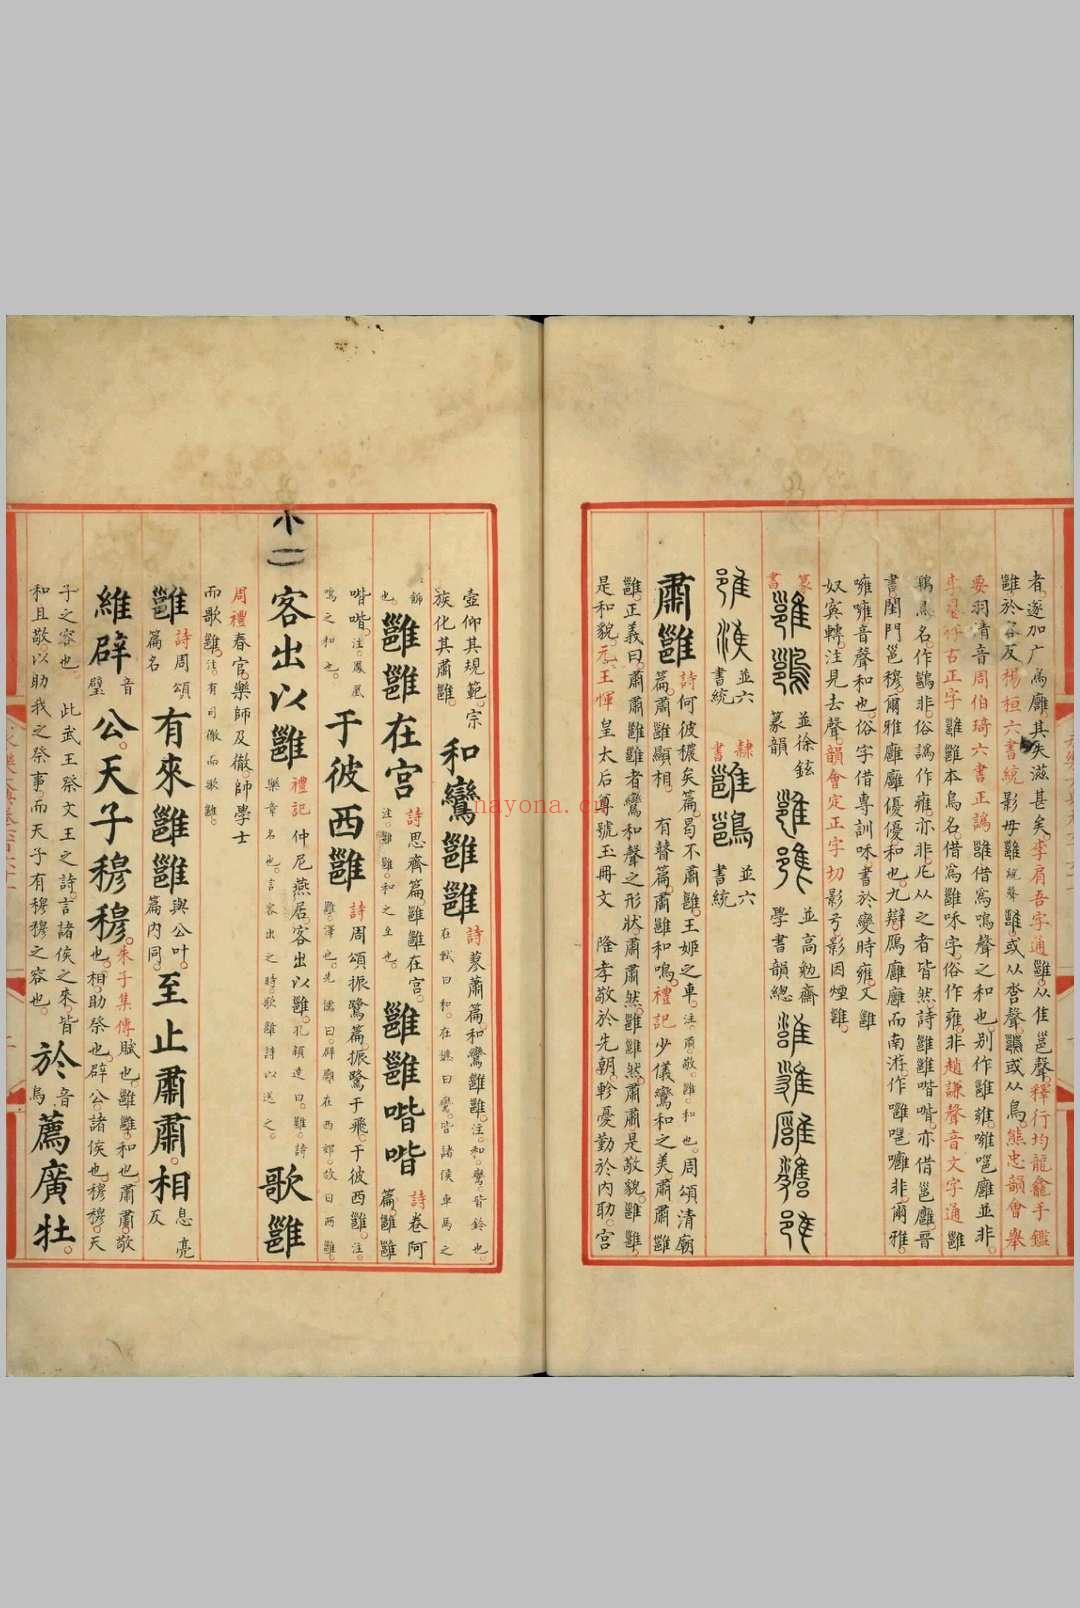 者。遂加广為廱。其失滋甚矣。李肩吾字通雝。从隹邕聲。釋行均龍龕手鑑
雝於容反。楊桓六書統影母雝統聲雝。或从杏聲。或从鳥。熊忠韻會舉
要羽清音。周伯琦六書正譌雝借為鳴聲之和也。别作雝雍嗈廱並非。
古正字雝雝本鳥名。借為雝咊字。俗作雍。非。趙謙聲音文字通雝
鳥名。作鷛非。俗譌作雍。亦非。凡从之者皆然。詩雝雝喈喈。亦借邕廱。晉
書閨門邕穆。爾雅廱廱優優和也。九辯鴈廱廱而南游。作嗈嗈非。爾雅。
噰噰音聲和也。俗字借專訓咊。書於變時雍。又雝
奴寅轉。注見去聲。韻會定正字切影弓影因煙雝。
篆書 並徐鉉篆韻 並高勉齋學書韻總
並六書統 隸書 並六書統
肅雝 詩何彼穠矣篇。曷不肅雝。王姬之車。注。肅。敬。雝。和也。周頌清廟
篇。肅雝顯相。有瞽篇。肅雝和鳴。禮記少儀鸞和之美。肅肅雝
雝。正義曰。肅肅雝雝者。鸞和聲之形狀。肅肅然。雝雝然。肅肅是敬貌。雝雝
是和貌。元王惲皇太后尊號玉冊文 隆孝敬於先朝。軫憂勤於內助。宮
壼仰其規範。宗
族化其肅雝。
和鸞雝雝 詩蓼蕭篇。和鸞雝雝。注。和。鸞。皆鈴也。
在軾曰和。在鑣曰鸞。皆諸侯車馬之
飾也。
雝雝在宮 詩思齊篇。雝雝在宮。
注。雝雝。和之至也。
雝雝喈喈 詩卷阿
篇。雝雝
喈喈。注。鳳凰
鳴之和也。
于彼西雝 詩周頌振鷺篇。振鷺于飛。于彼西雝。注。
雝。澤也。先儒曰。辟廱在西郊。故曰西雝。
客出以雝 禮記仲尼燕居。客出以雝。孔穎達曰。雝。詩
樂章名也。言客出之時。歌雝詩以送之。
歌雝
周禮春官。樂師及徹。帥學士
而歌雝。注。有司徹而歌雝。
雝 詩周頌
篇名
有來雝雝 與公叶。
篇內同。
至止肅肅。相 息亮
反
維辟 音
璧
公。天子穆穆。 朱子集傳賦也。雝雝。和也。肅肅。敬
也。相。助祭也。辟公。諸侯也。穆穆。天
子之容也。此武王祭文王之詩。言諸侯之來。皆
和且敬。以助我之祭事。而天子有穆穆之容也。
於 音
烏
薦廣牡。
nayona.cn